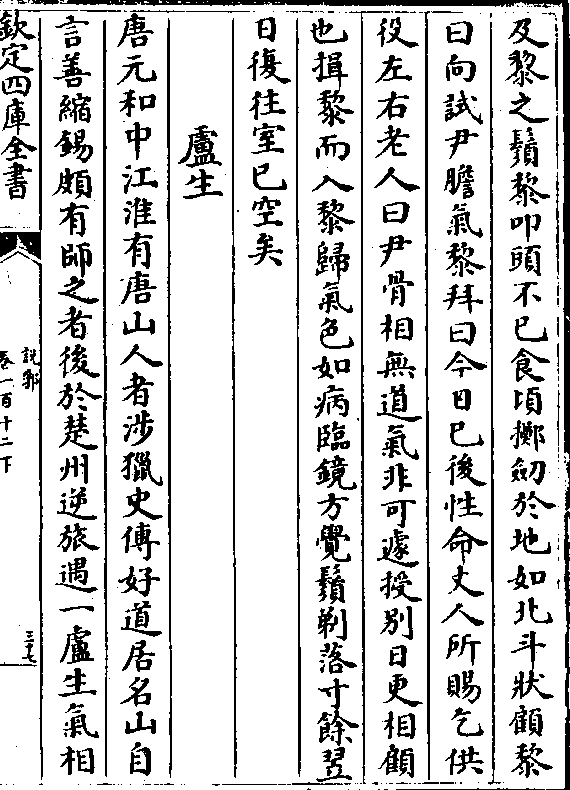 及黎之鬚黎叩頭不已食頃擲劒於地如北斗狀顧黎
曰向試尹膽氣黎拜曰今日已後性命丈人所賜乞供
役左右老人曰尹骨相無道氣非可遽授别日更相顧
也揖黎而入黎歸氣色如病臨鏡方覺鬚剃落寸餘翌
日復往室已空矣
盧生
唐元和中江淮有唐山人者涉獵史傳好道居名山自
言善縮錫頗有師之者後於楚州逆旅遇一盧生氣相
欽定四庫全書
說郛
卷一百十二下
三十七